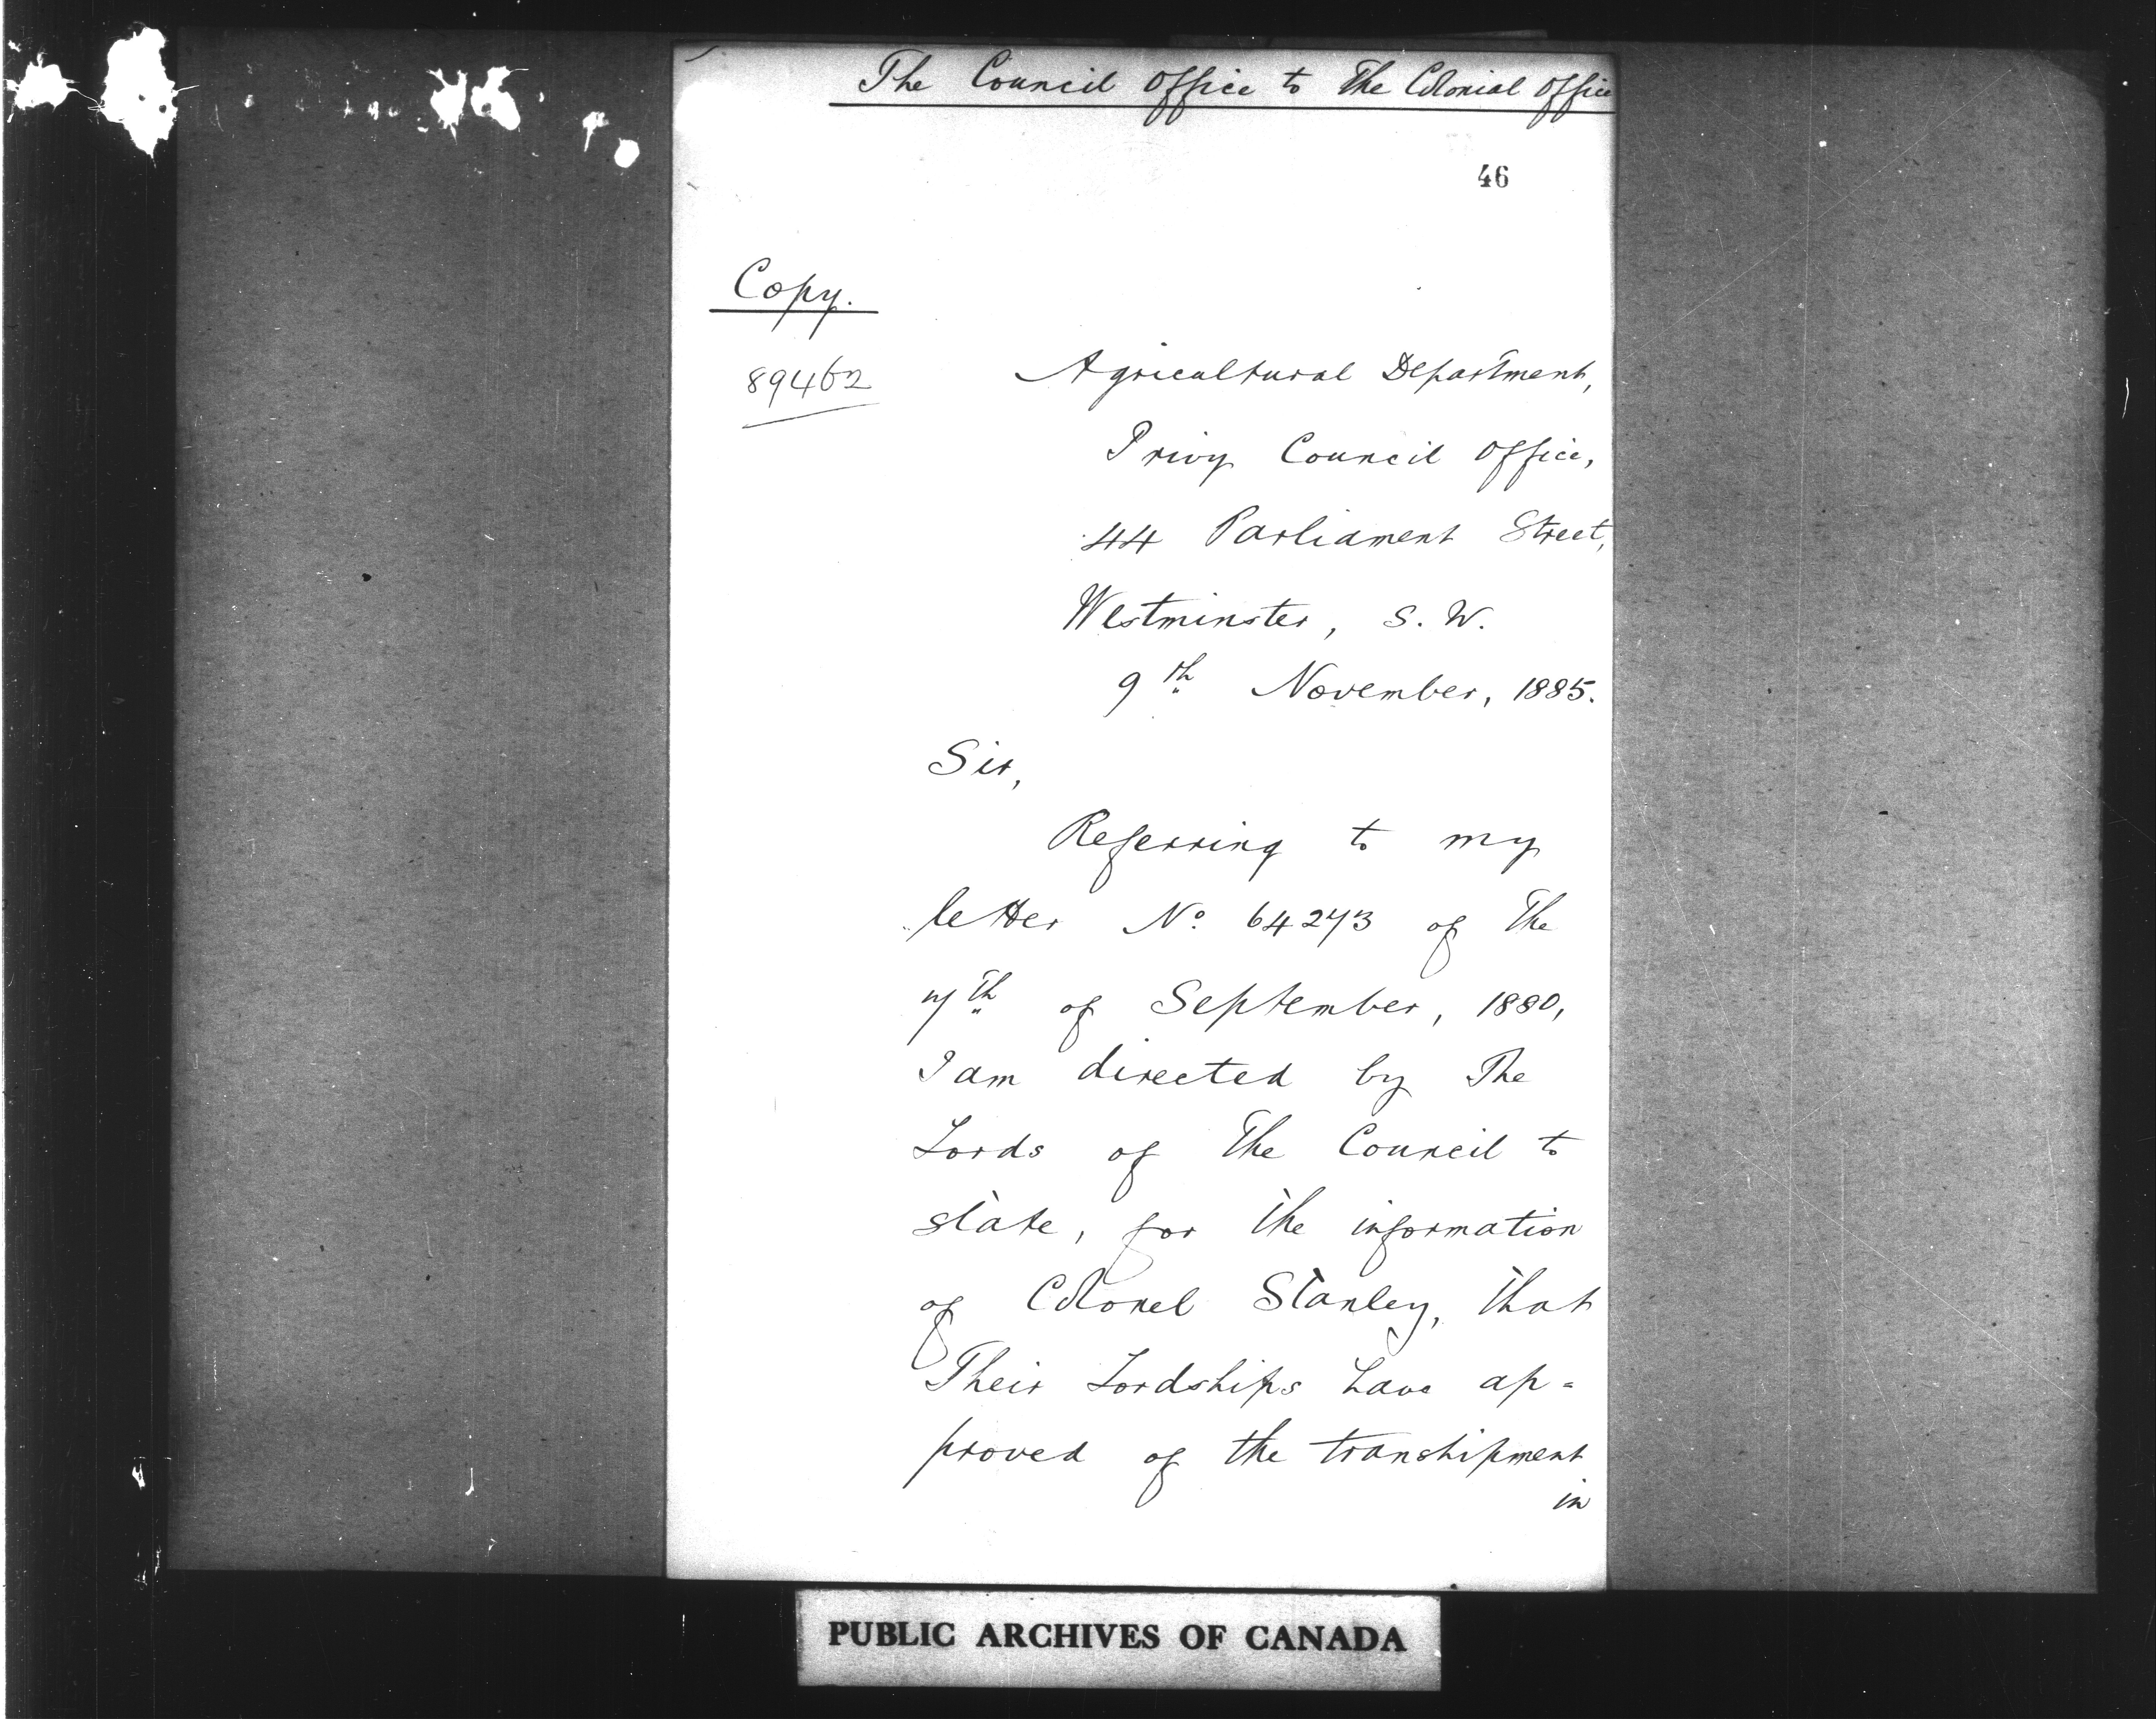 The Council Office to The Colonial Office
46
Copy.
89462
Agricultural Department,
Privy Council Office,
44 Parliament Street,
Westminster, S.W.
9th November, 1885.
Sir,
Referring to my
letter No. 64273 of the
7th of September, 1880,
I am directed by The
Lords of The Council to
state, for the information
of Colonel Stanley, that
Their Lordships have ap=
proved of the transhipment
in
PUBLIC ARCHIVES OF CANADA